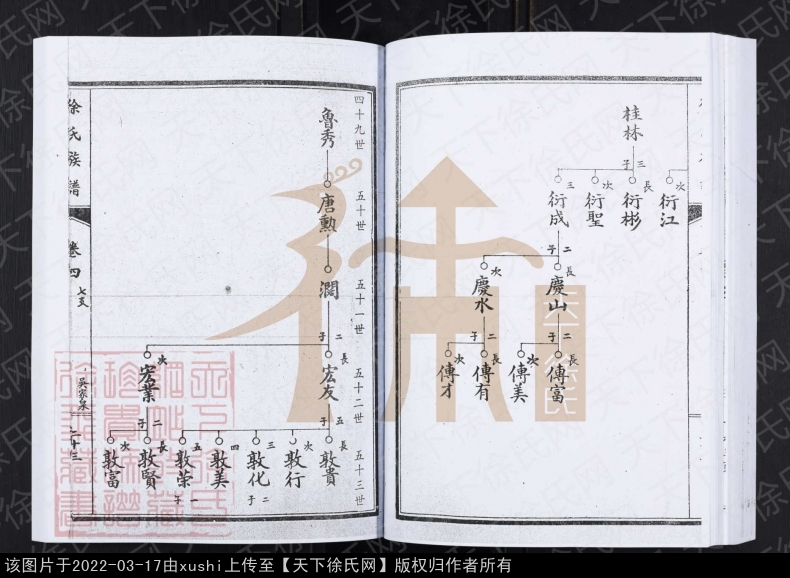 桂林
三子
次 衍江
長 衍彬
次 衍聖
三 衍成
二子
長 慶山
次 慶水
二子
長 傳富
次 傳美
二子
長 傳有
次 傳才
四十九世
五十世
五十一世
五十二世
五十三世
魯秀
唐勲
瀾
二子
長 宏友
次 宏業
五子
長 敦貴
次 敦行
三 敦化 二子
四 敦美
五 敦荣 一子
二子
長 敦賢
次 敦富
徐氏族譜
卷四
七支
吳家泉
七十三
天下徐氏
天下徐氏网
该图片于2022-03-17由xushi上传至【天下徐氏网】版权归作者所有